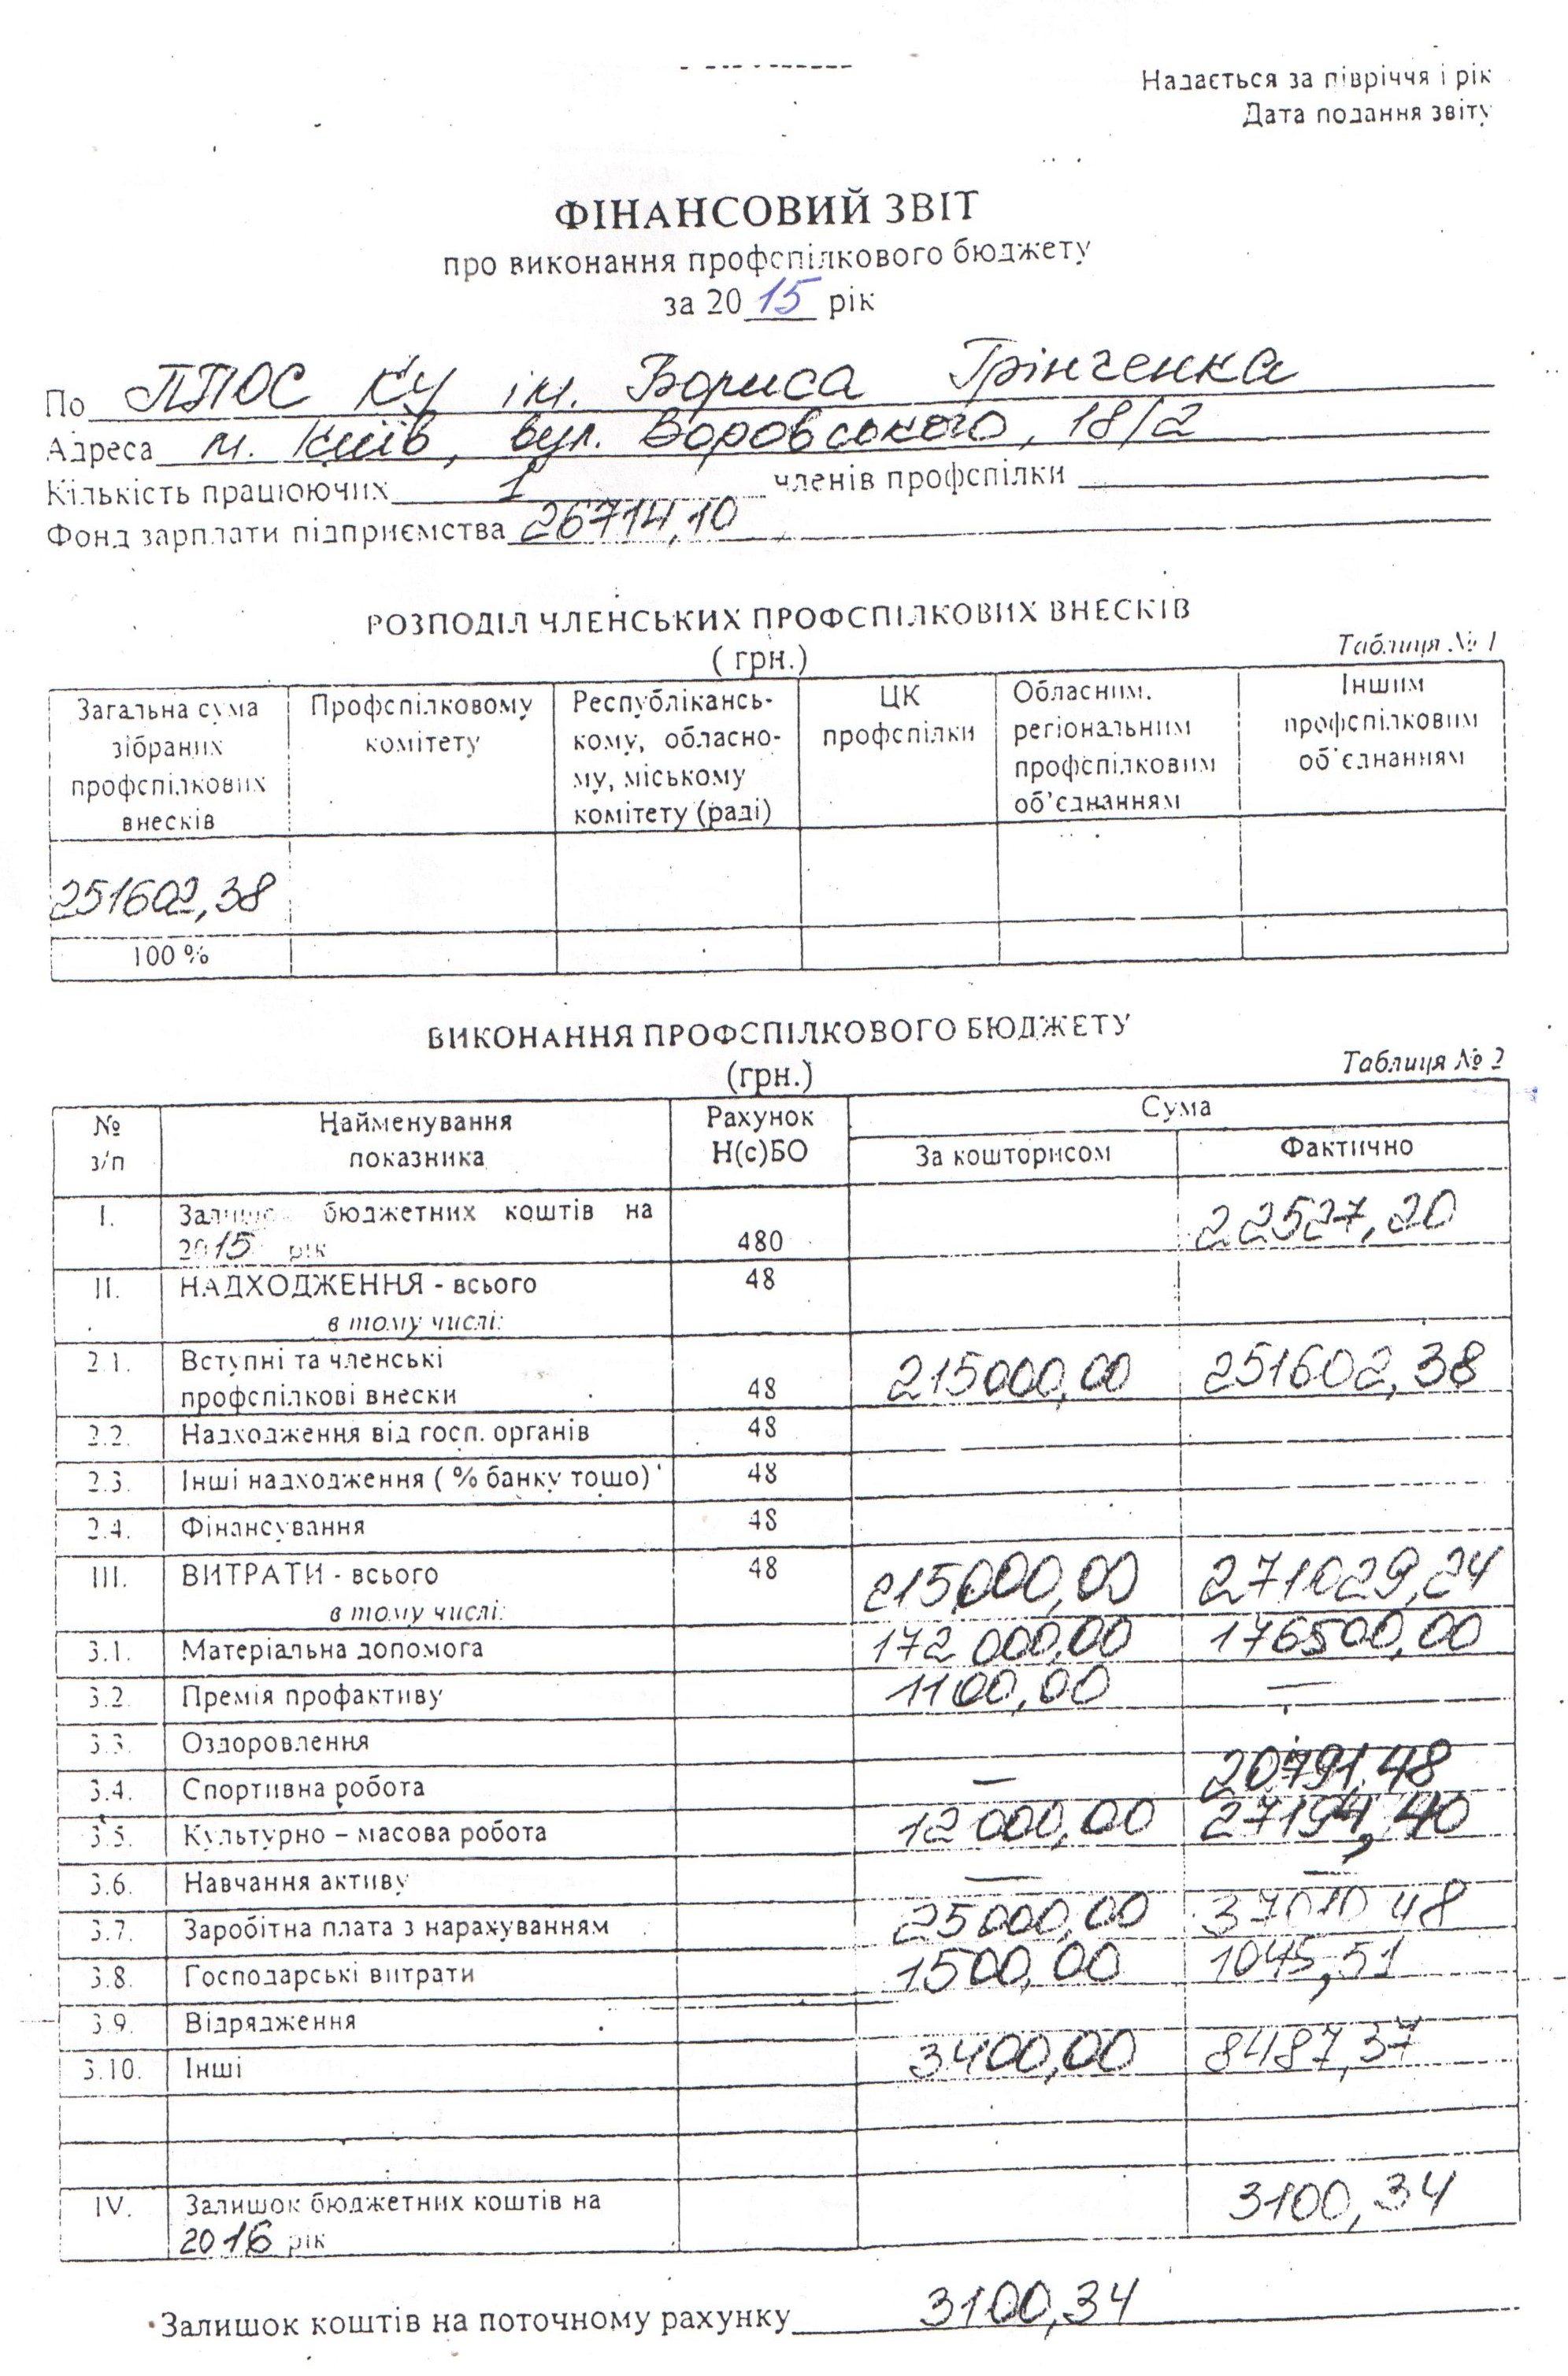 Надається за півріччя і рік
Дата подання звіту
ФІНАНСОВИЙ ЗВІТ
про виконання профспілкового бюджету
за 2015 рік
По ППОС КУ ім. Бориса Грінченка
Адреса м. Київ, вул. Воровського, 18/2
Кількість працюючих 1 членів профспілки
Фонд зарплати підприємства 26714,10
РОЗПОДІЛ ЧЛЕНСЬКИХ ПРОФСПІЛКОВИХ ВНЕСКІВ
( грн.)
Таблиця № 1
Загальна сума зібраних профспілкових внесків
Профспілковому комітету
Республікансь-
кому, обласно-
му, міському
комітету (раді)
ЦК
профспілки
Обласним.
регіональним
профспілковим
об'єднанням
Іншим
профспілковим
об'єднанням
251602,38
100 %
ВИКОНАННЯ ПРОФСПІЛКОВОГО БЮДЖЕТУ
(грн.)
Таблиця № 2
№ з/п Найменування показника Рахунок Н(с)БО Сума
За кошторисом Фактично
I. Залишок бюджетних коштів на
2015 рік 480 22527,20
II. НАДХОДЖЕННЯ - всього 48
в тому числі:
2.1. Вступні та членські
профспілкові внески 48 215000,00 251602,38
2.2. Надходження від госп. органів 48
2.3. Інші надходження ( % банку тощо) 48
2.4. Фінансування 48
III. ВИТРАТИ - всього 48 215000,00 271029,24
в тому числі:
3.1. Матеріальна допомога 172000,00 176500,00
3.2. Премія профактиву 1100,00 —
3.3. Оздоровлення
3.4. Спортивна робота — 20791,48
3.5. Культурно – масова робота 12000,00 27194,40
3.6. Навчання активу — —
3.7. Заробітна плата з нарахуванням 25000,00 37010 48
3.8. Господарські витрати 1500,00 1045,51
3.9. Відрядження
3.10. Інші 3400,00 8487,37
IV. Залишок бюджетних коштів на
2016 рік 3100,34
Залишок коштів на поточному рахунку 3100,34